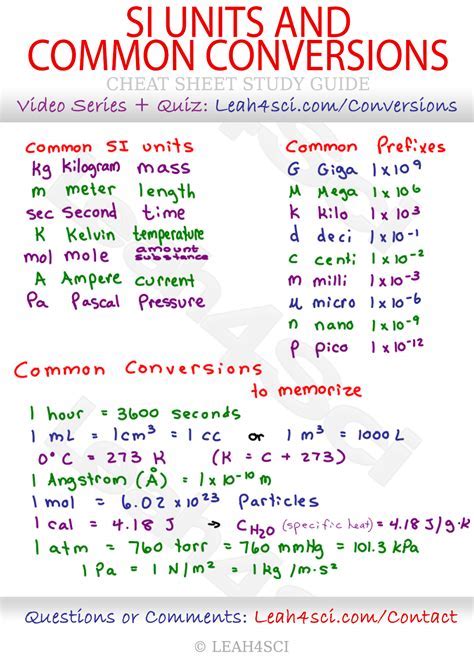 SI UNITS AND
COMMON CONVERSIONS
CHEAT SHEET STUDY GUIDE
Video Series + Quiz: Leah4sci.com/Conversions
Common SI units
kg kilogram mass
m meter length
sec Second time
K Kelvin temperature
mol mole amount substance
A Ampere current
Pa Pascal Pressure
Common Prefixes
G Giga 1 x 10⁹
M Mega 1 x 10⁶
k kilo 1 x 10³
d deci 1 x 10⁻¹
c centi 1 x 10⁻²
m milli 1 x 10⁻³
μ micro 1 x 10⁻⁶
n nano 1 x 10⁻⁹
p pico 1 x 10⁻¹²
Common Conversions
to memorize
1 hour = 3600 seconds
1 mL = 1cm³ = 1 cc or 1 m³ = 1000 L
0°C = 273 K (K = C + 273)
1 Angstrom (Å) = 1 x 10⁻¹⁰ m
1 mol = 6.02 x 10²³ Particles
1 cal = 4.18 J → C H₂O (specific heat) = 4.18 J/g·K
1 atm = 760 torr = 760 mmHg = 101.3 kPa
1 Pa = 1 N/m² = 1 kg/m·s²
Questions or Comments: Leah4sci.com/Contact
© LEAH4SCI
Leah4Sci
Leah4Sci